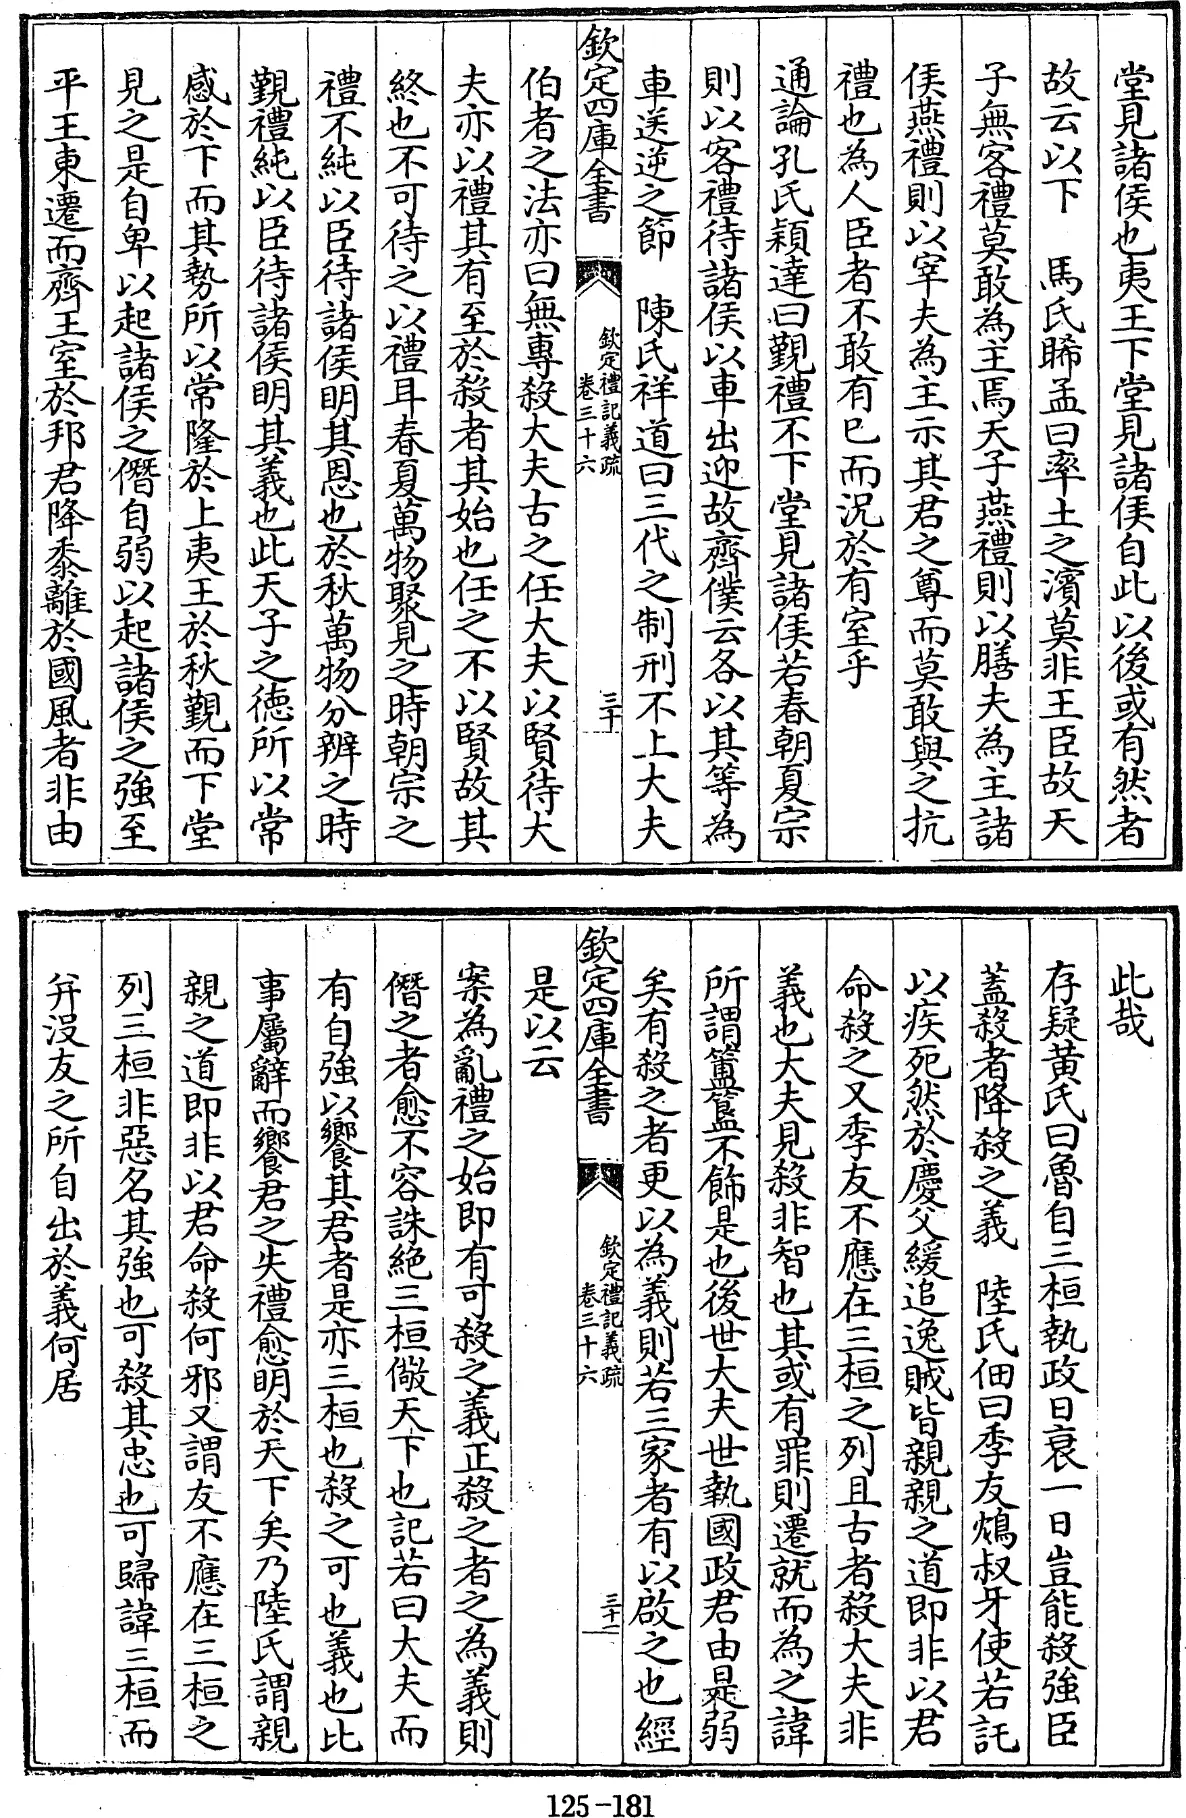 堂見諸侯也夷王下堂見諸侯自此以後或有然者
故云以下　馬氏睎孟曰率土之濱莫非王臣故天
子無客禮莫敢為主焉天子燕禮則以膳夫為主諸
侯燕禮則以宰夫為主示其君之尊而莫敢與之抗
禮也為人臣者不敢有已而況於有室乎
通論孔氏穎達曰覲禮不下堂見諸侯若春朝夏宗
則以客禮待諸侯以車出迎故齊僕云各以其等為
車送逆之節　陳氏祥道曰三代之制刑不上大夫
欽定四庫全書　欽定禮記義疏　卷三十六　三十
伯者之法亦曰無專殺大夫古之任大夫以賢待大
夫亦以禮其有至於殺者其始也任之不以賢故其
終也不可待之以禮耳春夏萬物聚見之時朝宗之
禮不純以臣待諸侯明其恩也於秋萬物分辨之時
覲禮純以臣待諸侯明其義也此天子之德所以常
感於下而其勢所以常隆於上夷王於秋覲而下堂
見之是自卑以起諸侯之僭自弱以起諸侯之強至
平王東遷而齊王室於邦君降黍離於國風者非由
此哉
存疑黃氏曰魯自三桓執政日衰一日豈能殺強臣
蓋殺者降殺之義　陸氏佃曰季友鴆叔牙使若託
以疾死然於慶父緩追逸賊皆親親之道即非以君
命殺之又季友不應在三桓之列且古者殺大夫非
義也大夫見殺非智也其或有罪則遷就而為之諱
所謂簠簋不飾是也後世大夫世執國政君由是弱
矣有殺之者更以為義則若三家者有以啟之也經
欽定四庫全書　欽定禮記義疏　卷三十六　三十一
是以云
案為亂禮之始即有可殺之義正殺之者之為義則
僭之者愈不容誅絕三桓儆天下也記若曰大夫而
有自強以饗其君者是亦三桓也殺之可也義也比
事屬辭而饗君之失禮愈明於天下矣乃陸氏謂親
親之道即非以君命殺何邪又謂友不應在三桓之
列三桓非惡名其強也可殺其忠也可歸諱三桓而
并没友之所自出於義何居
125-181